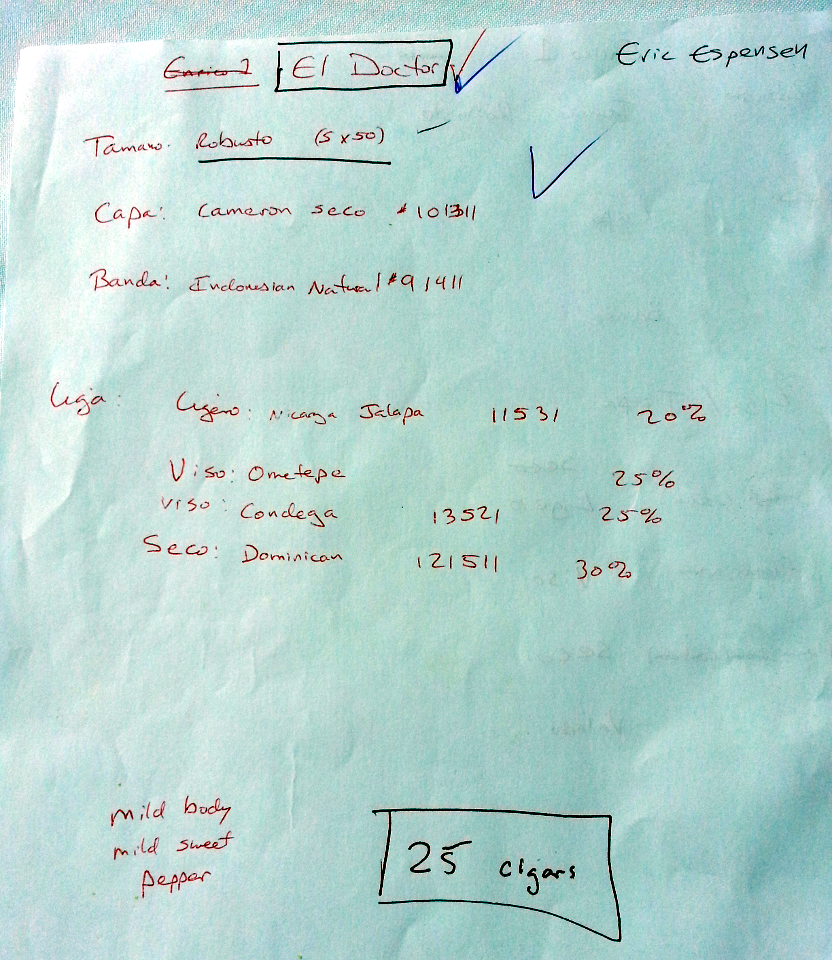 Enrico 2 El Doctor
Eric Espensen
Tamano: Robusto (5 x 50)
Capa: Cameron seco #101311
Banda: Indonesian Natural #91411
Liga: Ligero: Nicarga Jalapa 11531 20%
Viso: Ometepe 25%
Viso: Condega 13521 25%
Seco: Dominican 121511 30%
mild body
mild sweet
pepper
25 cigars